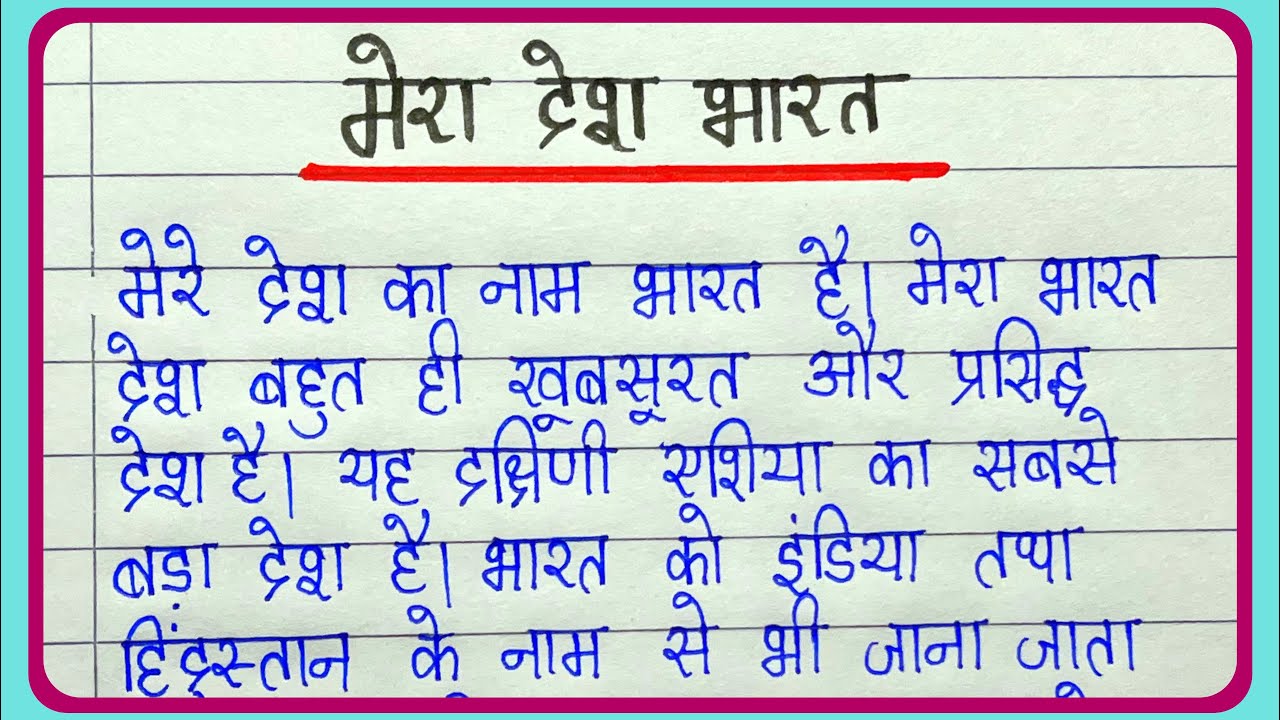 मेरा देश भारत
मेरे देश का नाम भारत है। मेरा भारत
देश बहुत ही खूबसूरत और प्रसिद्ध
देश है। यह दक्षिणी एशिया का सबसे
बडा देश है। भारत को इंडिया तथा
हिंदुस्तान के नाम से भी जाना जाता